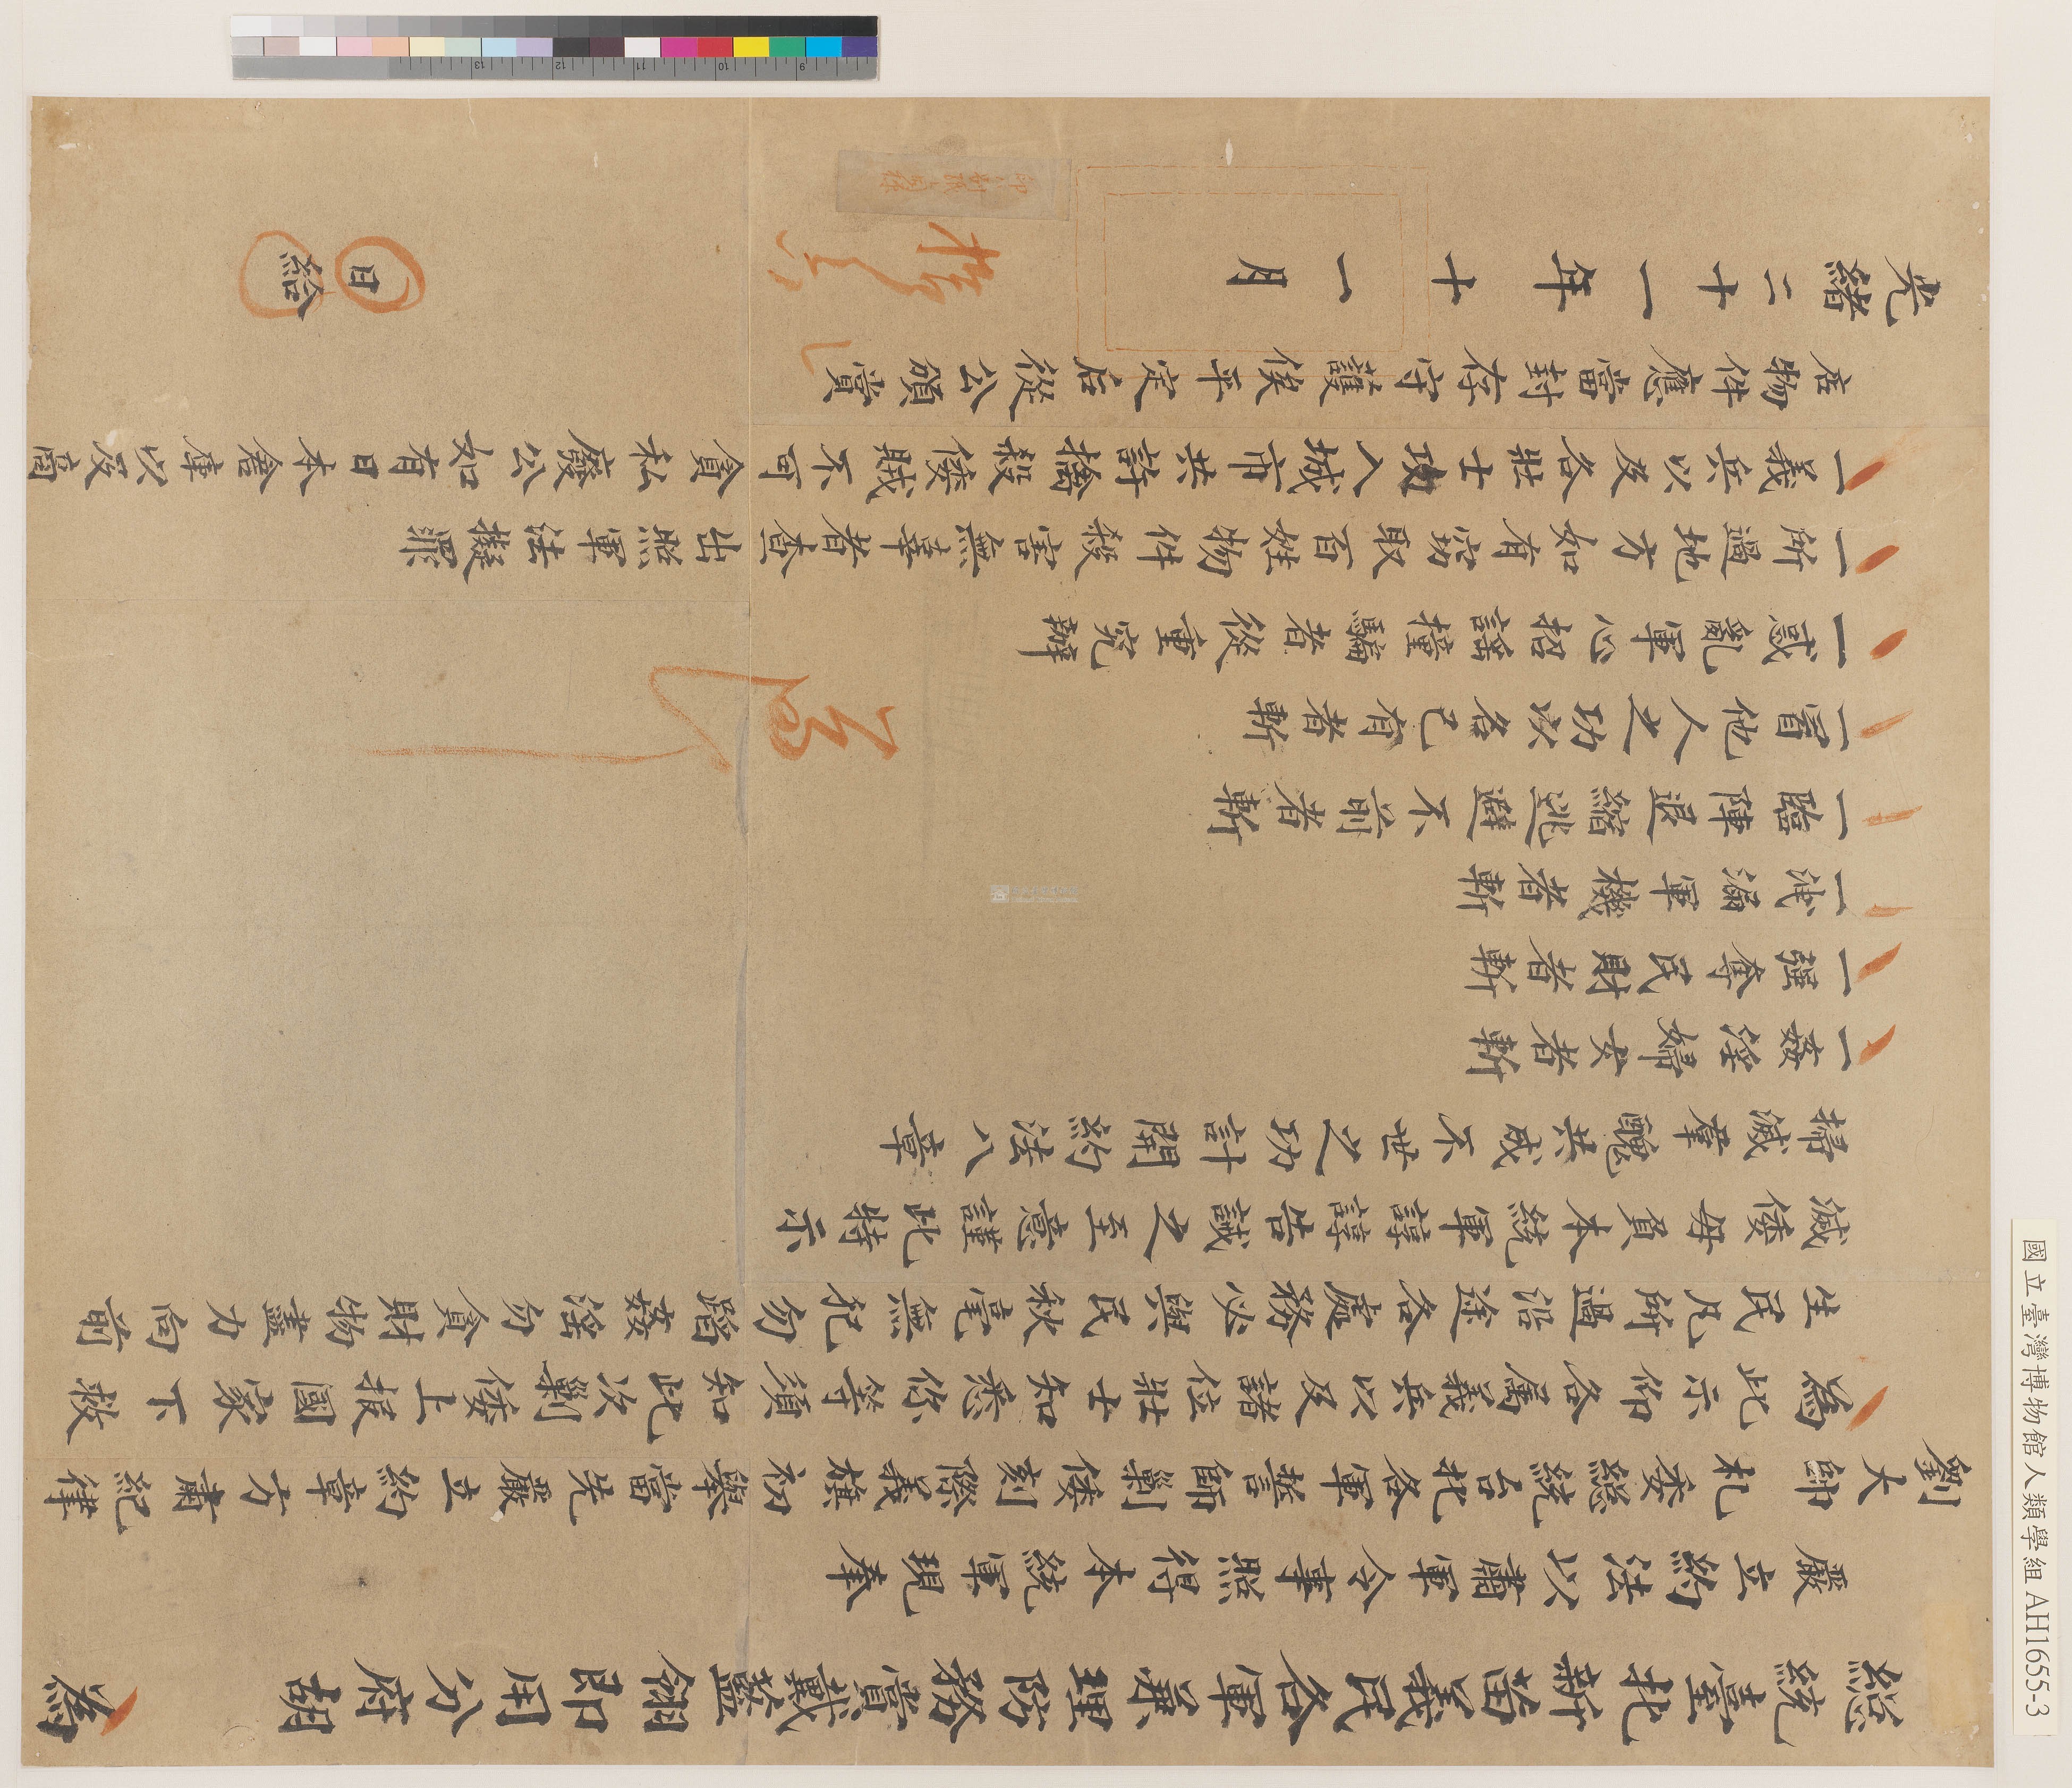 總統臺北新苗義民各軍兼理防務賞戴藍翎即用分府胡　為
嚴立約法以肅軍令事照得本統軍現奉
劉大帥札委總統台北各軍誓師剿倭刻際義旗初舉當先嚴立約章方肅紀律
為此示仰各屬義兵以及諸位壯士知悉你等須知此次剿倭上報國家下救
生民凡所過沿途各處務必與民秋毫無犯勿蹈姦淫勿貪財物盡力向前
滅倭毋負本統軍諄諄告誡之至意謹此特示
掃滅羣醜共成不世之功計開約法八章
一姦淫婦女者斬
一強奪民財者斬
一洩漏軍機者斬
一臨陣退縮逃避不前者斬
一冒他人之功以名己有者斬
一惑亂軍心招謠撞騙者從重究辦
一所過地方如有窃取百姓物件殺害無辜者查出照軍法擬罪
一義兵以及各壯士攻入城市共許擒殺倭賊不可貪私廢公如有日本倉庫以及商
店物件應當封存守護俟平定后從公頒賞
光緒二十一年十一月
日
給
遵
國立臺灣博物館人類學組 AH1655-3
9 10 11 12 13